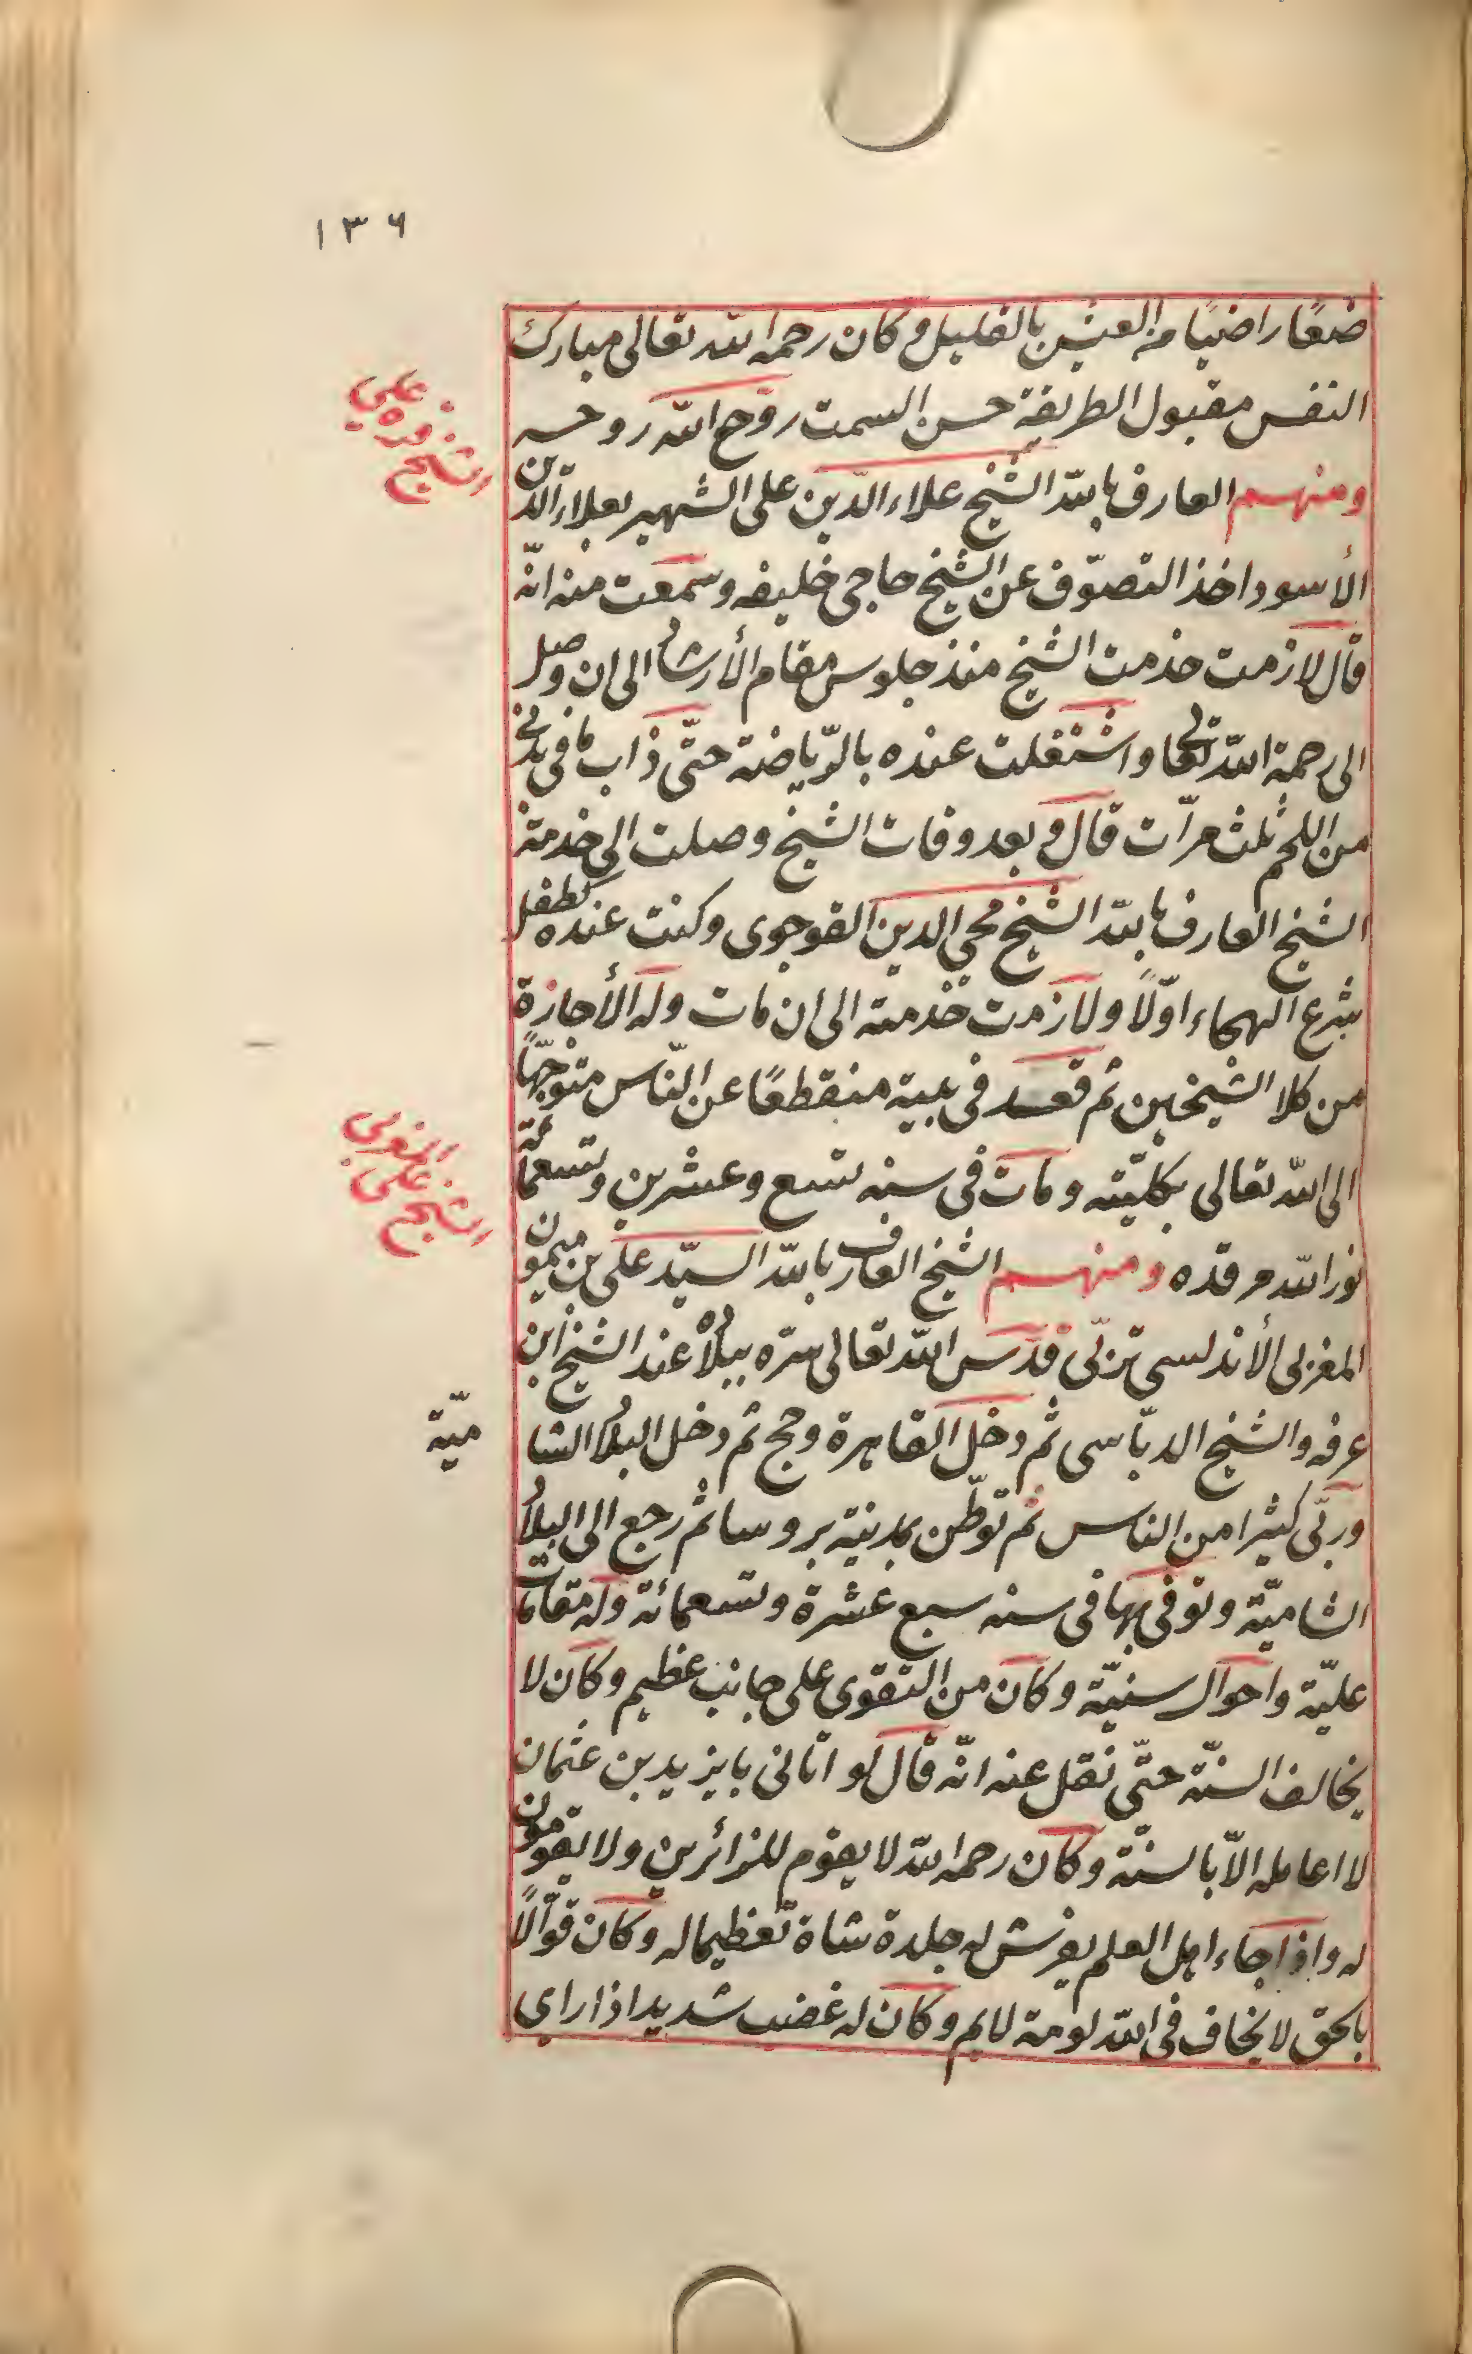 ١٣٦
راضيًا من العيش بالقليل وكان رحمه الله تعالى مبارك
النفس مقبول الطريقة حسن السمت روّح الله روحه
ومنهم العارف بالله الشيخ علاء الدين على الشهير بعلاء الدين
الأسود اخذ التصوّف عن الشيخ حاجى خليفه وسمعت منه انّه
قال لازمت خدمت الشيخ منذ جلوس مقام الأرشاد الى ان وصل
الى رحمة الله تعالى واشتغلت عنده بالرّياضة حتّى ذاب ما فى بدنى
من اللحم ثلث مرّات قال وبعد وفات الشيخ وصلت الى خدمة
الشيخ العارف بالله الشيخ محيي الدين القوجوى وكنت عنده كطفل
شرع الهجاء اوّلًا ولازمت خدمته الى ان مات وله الأجازة
من كلا الشيخين ثم قعد فى بيته منقطعًا عن النّاس متوجّهًا
الى الله تعالى بكليّته ومات فى سنه تسع وعشرين وتسعمائة
نور الله مرقده ومنهم الشيخ العارف بالله السيّد على بن ميمون
المغربى الأندلسى تربّى قدّس الله تعالى سرّه ببلاده عند الشيخ ابن
عرفه والشيخ الدبّاسى ثم دخل القاهرة وحج ثم دخل البلاد الشا
ميّة
وربّى كثيرا من الناس ثم توطّن بمدينة بروسا ثم رجع الى البلاد
الشاميّة وتوفى بها فى سنه سبع عشرة وتسعمائة وله مقامات
عليّة واحوال سنيّة وكان من التقوى على جانب عظيم وكان لا
يخالف السنّة حتّى نقل عنه انّه قال لو اتانى بايزيد بن عثمان
لا اعامله الّا بالسنّة وكان رحمه الله لا يقوم للزائرين ولا يقومون
له واذا جاء اهل العلم يفرش له جلدة شاة تعظيما له وكان قوّالًا
بالحق لا يخاف فى الله لومة لايم وكان له غضب شديد اذا راى
الشيخ
على
الشيخ على
المغربى